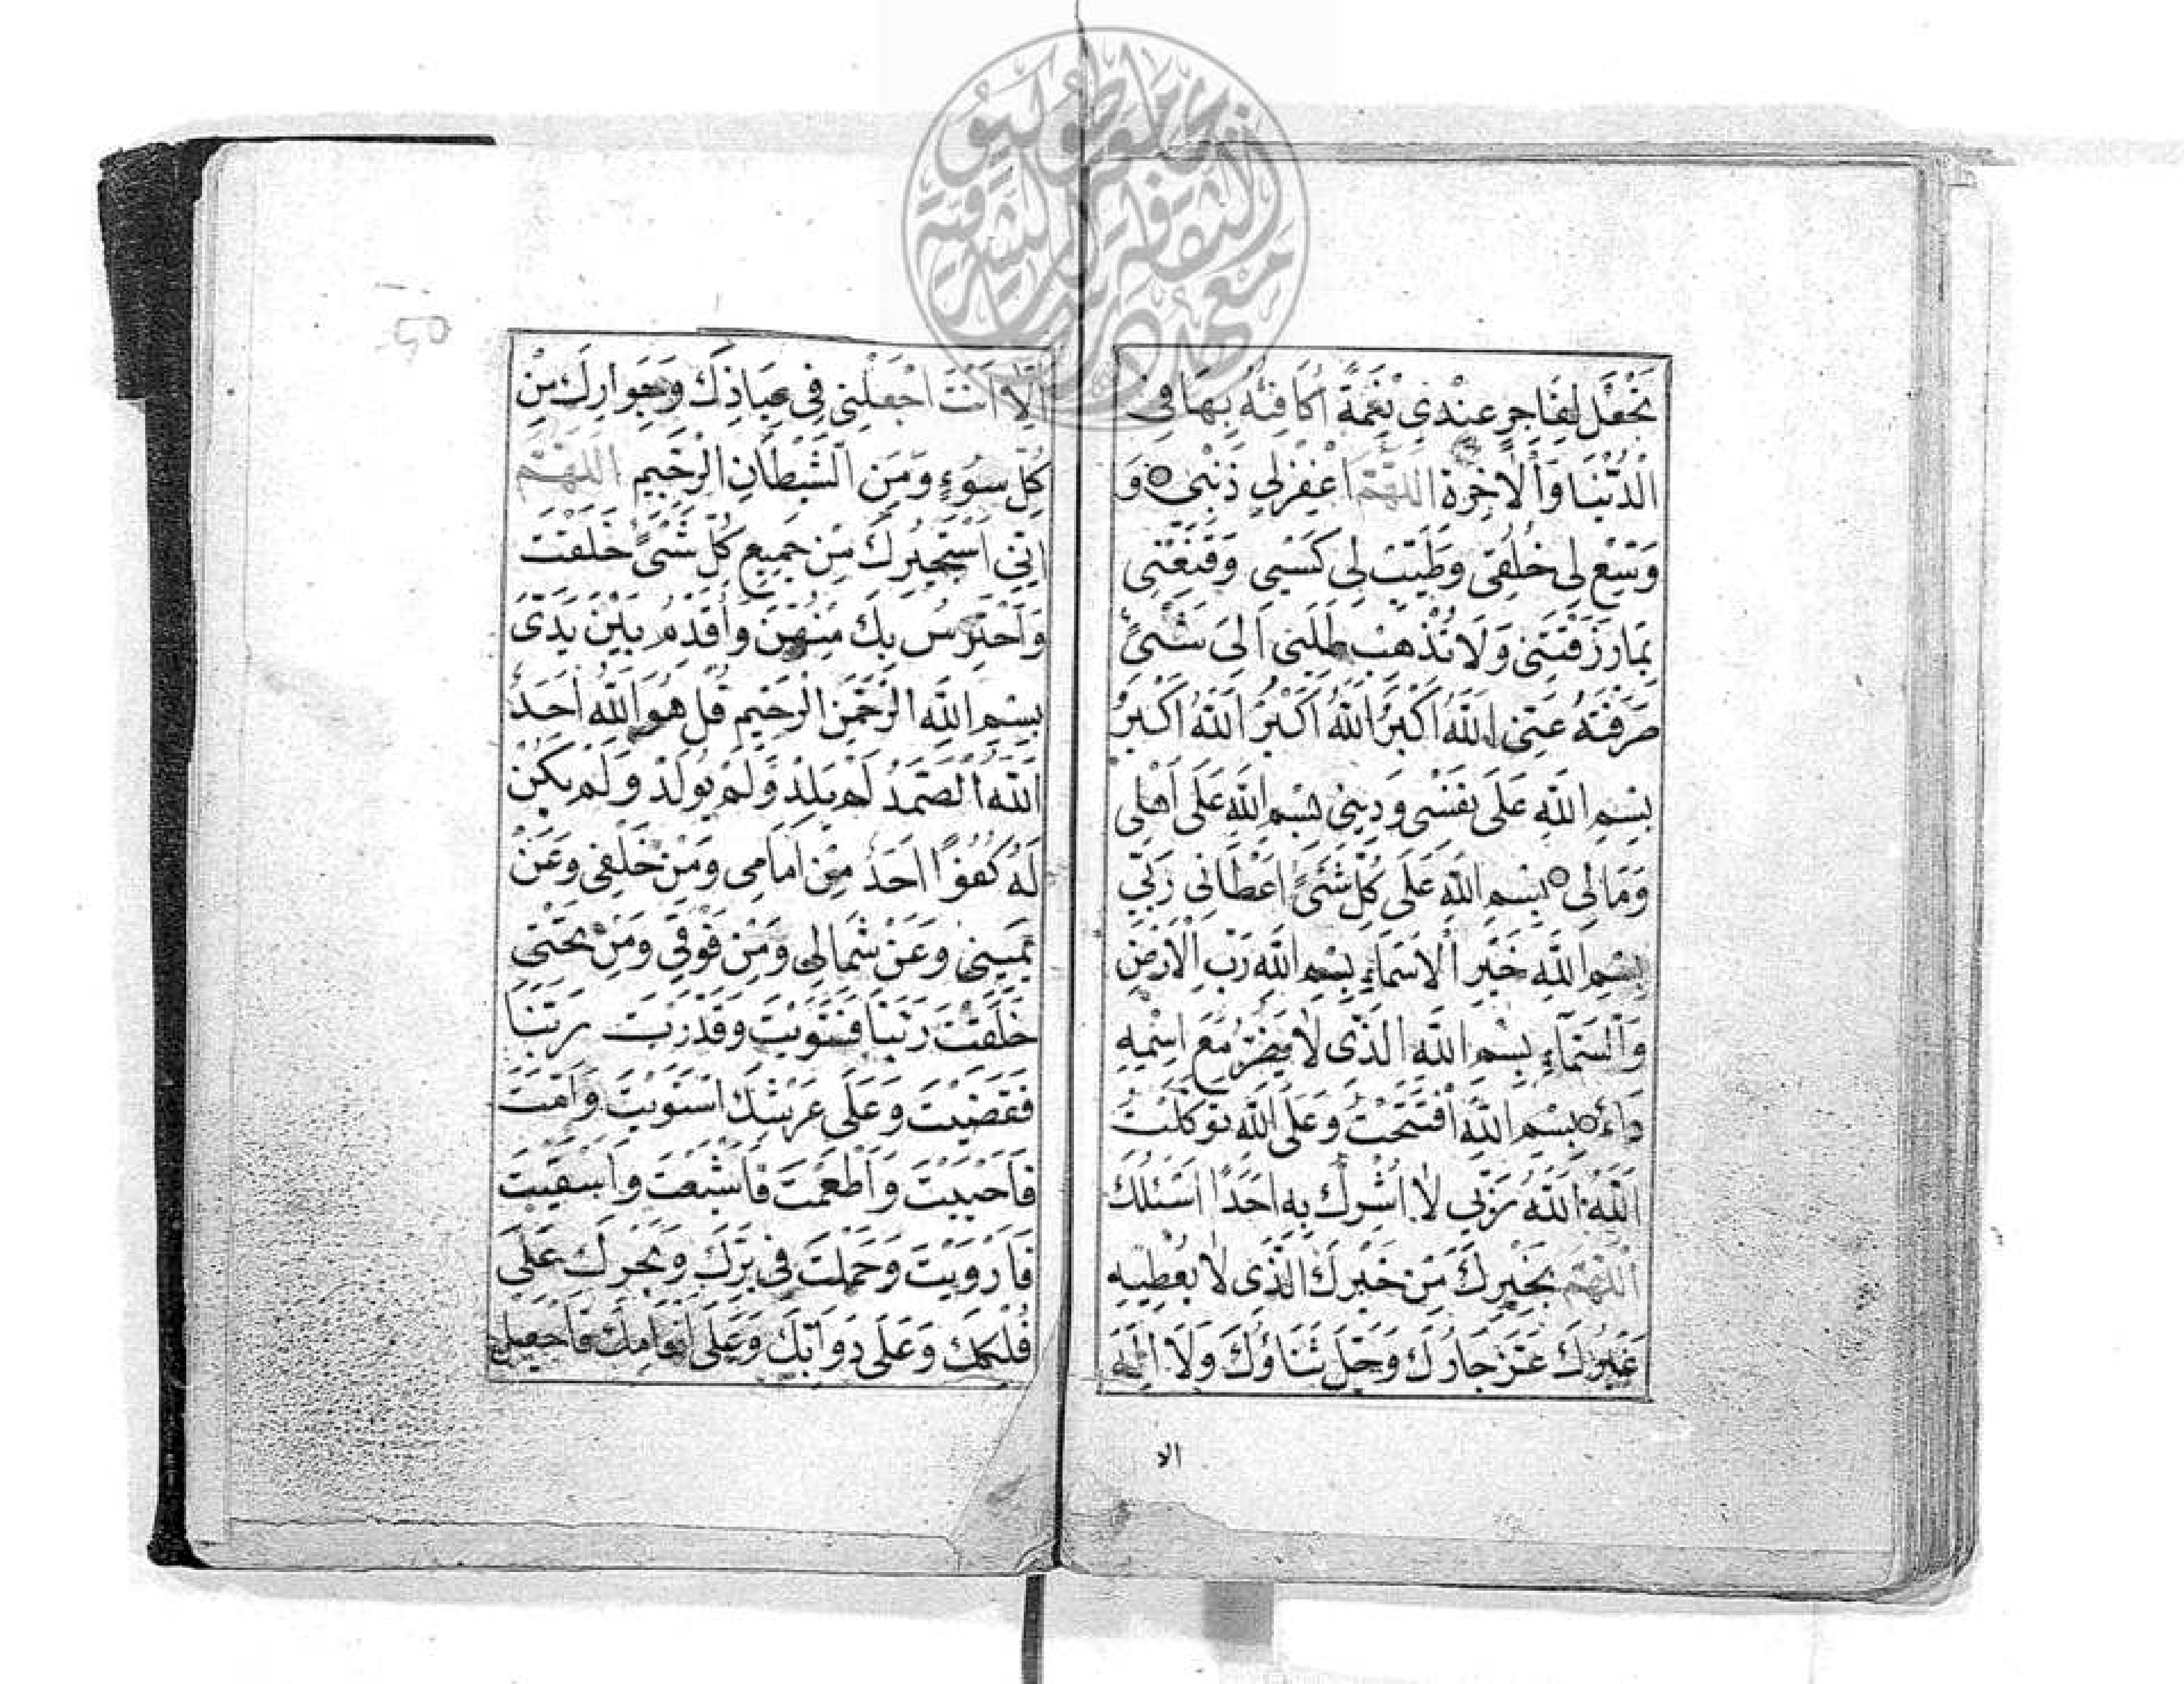 تَجْعَلْ لِفَاجِرٍ عِنْدِي نِعْمَةً اُكَافِئُهُ بِهَا فِي
الْدُّنْيَا وَالْاٰخِرَةِ اَللّٰهُمَّ اغْفِرْلِي ذَنْبِي وَ
وَسِّعْ لِي خُلُقِي وَطَيِّبْ لِي كَسْبِي وَقَنِّعْنِي
بِمَا رَزَقْتَنِي وَلَا تُذْهِبْ طَلَبِي اِلَى شَيْئٍ
صَرَفْتَهُ عَنِّي اَللّٰهُ اَكْبَرُ اَللّٰهُ اَكْبَرُ اَللّٰهُ اَكْبَرُ
بِسْمِ اللّٰهِ عَلَى نَفْسِي وَدِينِي بِسْمِ اللّٰهِ عَلَى اَهْلِي
وَمَالِي بِسْمِ اللّٰهِ عَلَى كُلِّ شَيْئٍ اَعْطَانِي رَبِّي
بِسْمِ اللّٰهِ خَيْرِ الْاَسْمَاءِ بِسْمِ اللّٰهِ رَبِّ الْاَرْضِ
وَالسَّمَاءِ بِسْمِ اللّٰهِ الَّذِي لَا يَضُرُّ مَعَ اسْمِهِ
دَاءٌ بِسْمِ اللّٰهِ افْتَتَحْتُ وَعَلَى اللّٰهِ تَوَكَّلْتُ
اَللّٰهُ اَللّٰهُ رَبِّي لَا اُشْرِكُ بِهِ اَحَدًا اَسْئَلُكَ
اَللّٰهُمَّ بِخَيْرِكَ مِنْ خَيْرِكَ الَّذِي لَا يُعْطِيهِ
غَيْرُكَ عَزَّ جَارُكَ وَجَلَّ ثَنَاؤُكَ وَلَا اِلٰهَ
الا
اِلَّا اَنْتَ اجْعَلْنِي فِي عِيَاذِكَ وَجِوَارِكَ مِنْ
كُلِّ سُوءٍ وَمِنَ الشَّيْطَانِ الرَّجِيمِ اَللّٰهُمَّ
اِنِّي اَسْتَجِيرُكَ مِنْ جَمِيعِ كُلِّ شَيْئٍ خَلَقْتَ
وَاَحْتَرِسُ بِكَ مِنْهُنَّ وَاُقَدِّمُ بَيْنَ يَدَيَّ
بِسْمِ اللّٰهِ الرَّحْمٰنِ الرَّحِيمِ قُلْ هُوَ اللّٰهُ اَحَدٌ
اَللّٰهُ الصَّمَدُ لَمْ يَلِدْ وَلَمْ يُولَدْ وَلَمْ يَكُنْ
لَهُ كُفُوًا اَحَدٌ مِنْ اَمَامِي وَمِنْ خَلْفِي وَعَنْ
يَمِينِي وَعَنْ شِمَالِي وَمِنْ فَوْقِي وَمِنْ تَحْتِي
خَلَقْتَ رَبَّنَا فَسَوَّيْتَ وَقَدَّرْتَ رَبَّنَا
فَقَضَيْتَ وَعَلَى عَرْشِكَ اسْتَوَيْتَ وَاَمَتَّ
فَاَحْيَيْتَ وَاَطْعَمْتَ فَاَشْبَعْتَ وَاَسْقَيْتَ
فَاَرْوَيْتَ وَحَمَلْتَ فِي بَرِّكَ وَبَحْرِكَ عَلَى
فُلْكِكَ وَعَلَى دَوَابِّكَ وَعَلَى اَنْعَامِكَ فَاجْعَلْ